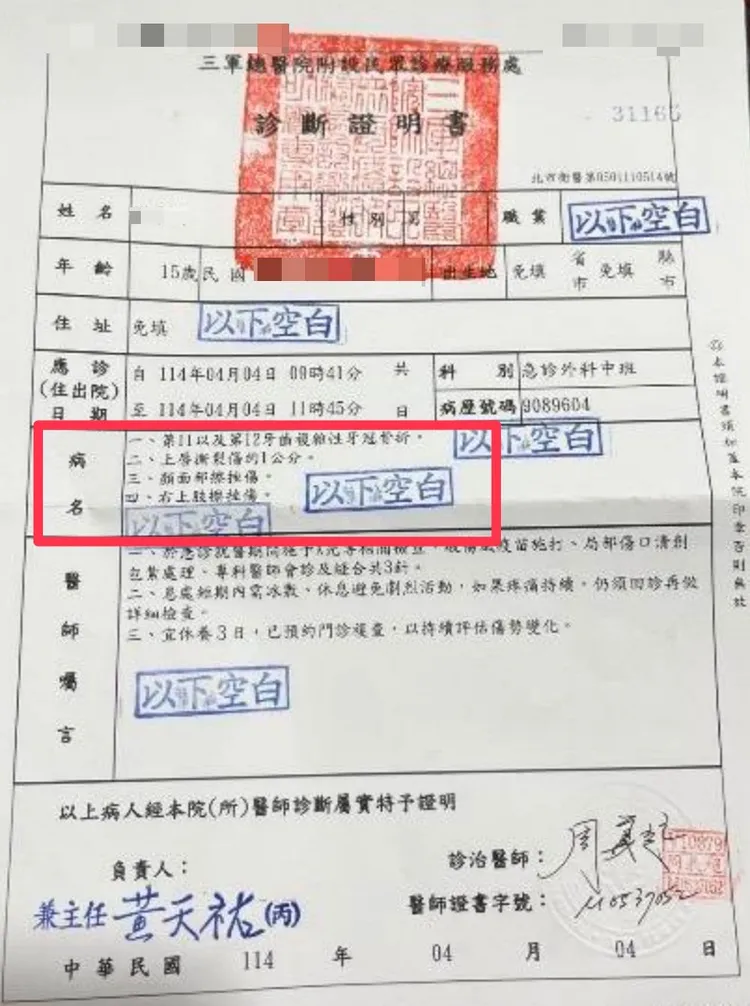 三軍總醫院附設民眾診療服務處
診斷證明書
31165
北市衛醫第0501110514號
姓名 性別 男 職業 以下空白
年齡 15歲 民國 出生地 免填 省市 免填 縣市
住址 免填 以下空白
應診(住出院)日期 自 114年04月04日 09時41分 共 科別 急診外科中班
至 114年04月04日 11時45分 日 病歷號碼 9089604
病名
一、第11以及第12牙齒複雜性牙冠骨折。
以下空白
二、上唇撕裂傷約1公分。
三、顏面部擦挫傷。
四、右上肢擦挫傷。
以下空白
以下空白
醫師囑言
一、於應診就醫期間施予X光等相關檢查、破傷風疫苗施打、局部傷口清創
包紮處理、專科醫師會診及縫合共3針。
二、患處短期內需冰敷、休息避免劇烈活動，如果疼痛持續，仍須回診再做
詳細檢查。
三、宜休養3日，已預約門診複查，以持續評估傷勢變化。
以下空白
以上病人經本院(所)醫師診斷屬實特予證明
負責人：
診治醫師：
兼主任 黃天祐(丙)
醫師證書字號：
中華民國 114 年 04 月 04 日
本證明書須加蓋本院印章否則無效